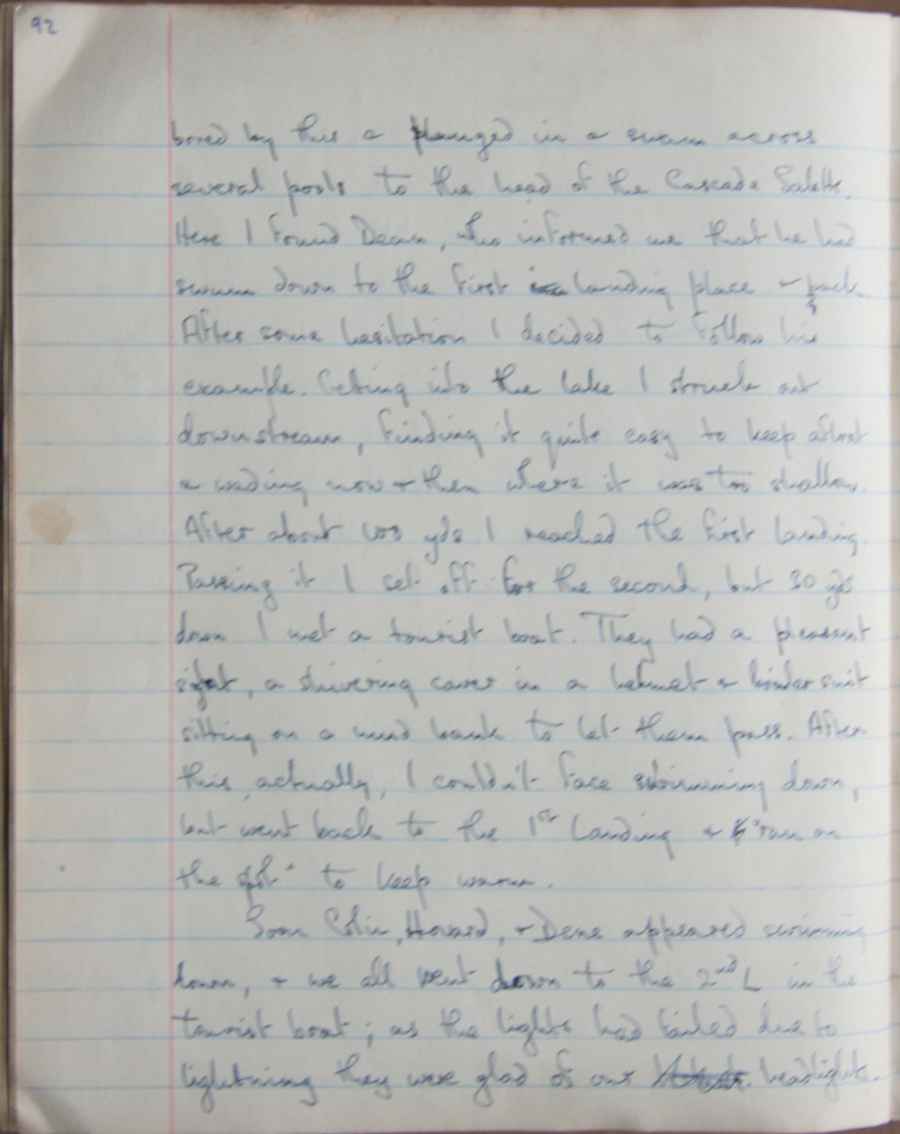 92
bored by this & plunged in & swam across
several pools to the head of the Cascade Salette.
Here I found Dean, who informed me that he had
swum down to the first landing place & back.
After some hesitation I decided to follow his
example. Geting into the lake I struck out
downstream, finding it quite easy to keep afloat
& wading now & then where it was too shallow.
After about 100 yds I reached the first landing.
Passing it I set off for the second, but 30 yds
down I met a tourist boat. They had a pleasant
sight, a shivering caver in a helmet & boiler suit
sitting on a mud bank to let them pass. After
this, actually, I couldn't face swimming down,
but went back to the 1st Landing & "ran on
the spot" to keep warm.
Soon Colin, Howard, & Dene appeared swimming
down, & we all went down to the 2nd L in the
tourist boat; as the lights had failed due to
lightning they were glad of our headlights.